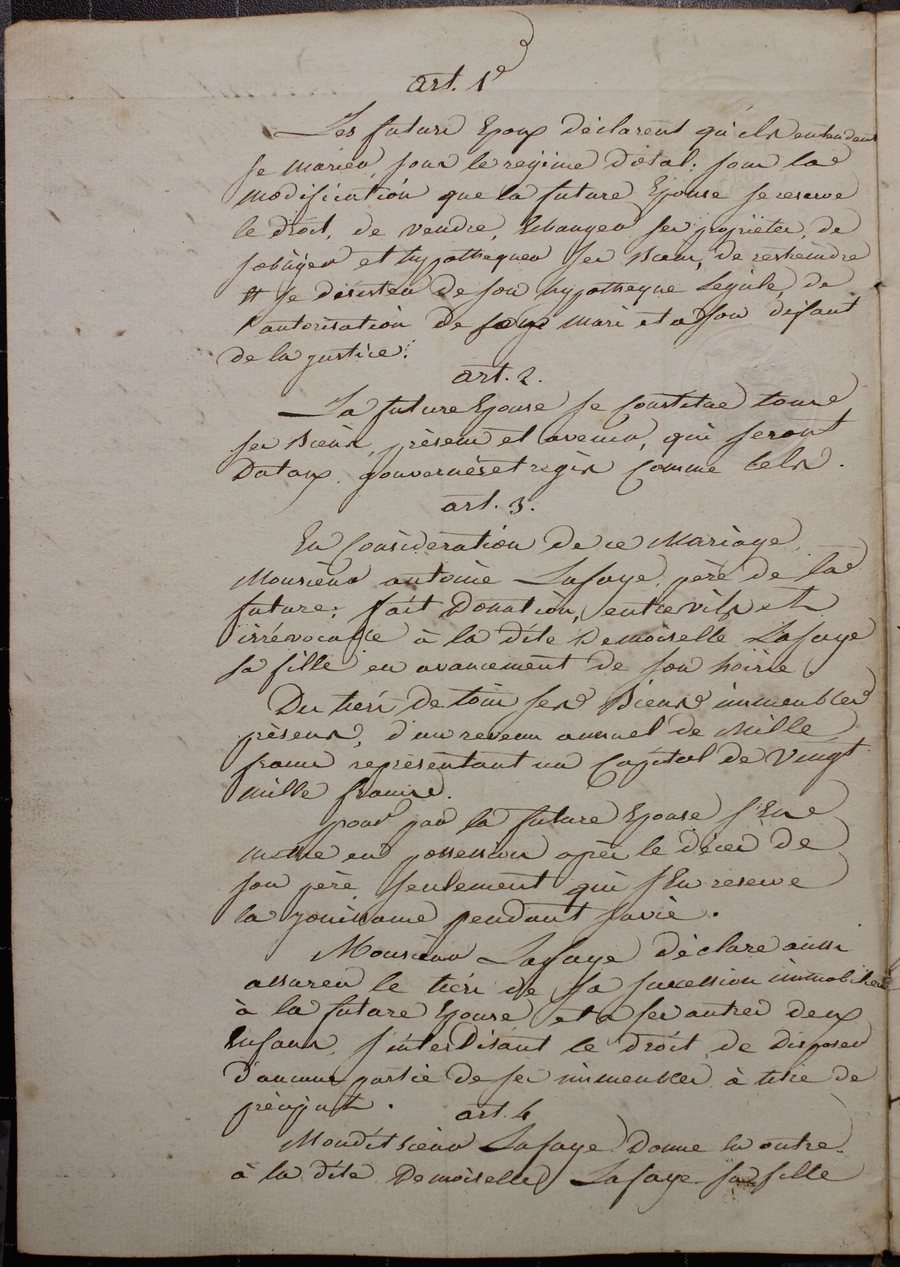 art. 1e
Les futurs Epoux déclarent qu'ils entendent
se marier, sous le regime dotal; sous la
modification que la future Epouse se reserve
le droit, de vendre, Echanger ses propriétés, de
sobliger et hypothequer ses Biens, de restreindre
et se désister de son hypotheque Légale, de
l'autorisation De son mari et a son défaut
de la justice.
art. 2.
La future Epouse se Constitue tous
ses Biens, présens et avenir, qui seront
Dotaux, gouvernés et regis Comme tels.
art. 3.
En Considération de ce Mariage,
Monsieur antoine Lafaye, père de la
future; fait Donation, entrevifs et
irrévocable à la dite Demoiselle Lafaye
sa fille en avancement de son hoirie.
Du tiers de tous ses Biens immeubles
présens, d'un revenu annuel de Mille
francs représentant un Capital de Vingt
mille francs.
pour par la future Epouse s'En
mettre en possession après le décès de
son père seulement qui s'En reserve
la jouissance pendant sa vie.
Monsieur Lafaye déclare aussi
assurer le tiers de sa succession immobiliere
à la future Epouse et a ses autres deux
Enfans, s'interdisant le droit de disposer
d'aucune partie de ses immeubles à titre de
préciput.
art. 4
Mondit sieur Lafaye Donne en outre
à la dite Demoiselle Lafaye sa fille